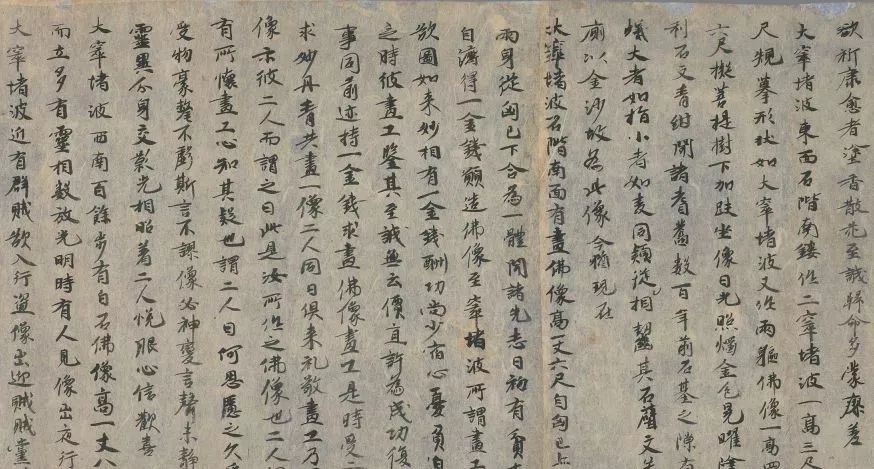 欲祈康愈者塗香散花至誠歸命多蒙瘳差
大窣堵波東西石階南鏤作二窣堵波一高三
尺規摹形狀如大窣堵波又作兩軀佛像一高四
六尺擬菩提樹下加趺坐像日光照燭金色晃曜陰
利石文青紺聞諸耆舊數百年前石基之隙有
蟻大者如指小者如麦同類從相齧其石壁文
廁以金沙故為此像今猶現在
大窣堵波石階南面有畫佛像高一丈六尺自匈已上
兩身從匈已下合為一體聞諸先志曰初有貧
自濟得一金錢願造佛像至窣堵波所謂畫工
欲圖如來妙相有一金錢酬功尚少宿心憂負迫
之時彼畫工鑒其至誠無云價直許為成功復
事同前迹持一金錢求畫佛像畫工是時受二
求妙丹青共畫一像二人同日俱來礼敬畫工乃
像示彼二人而謂之曰此是汝所作之佛像也二人相
有所懷畫工心知其疑也謂二人曰何思慮之久乎
受物豪釐不虧斯言不謬像必神變言聲未靜
靈異分身交影光相照著二人悅服心信歡喜
大窣堵波西南百餘步有白石佛像高一丈八
而立多有靈相數放光明時有人見像出夜行
大窣堵波近有群賊欲入行盜像出迎賊賊黨